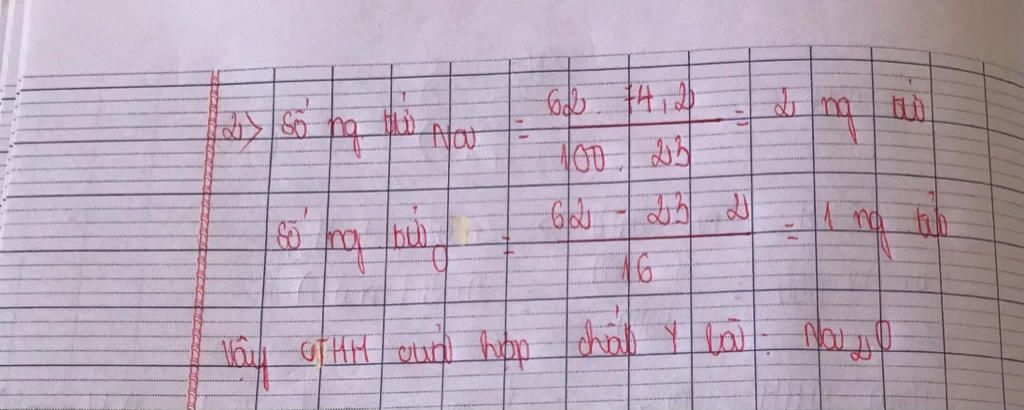 2) Số ng tử Na = 62 . 74,2 / 100 . 23 = 2 ng tử
Số ng tử O = 62 - 23 . 2 / 16 = 1 ng tử
Vậy CTHH của hợp chất Y là : Na2O